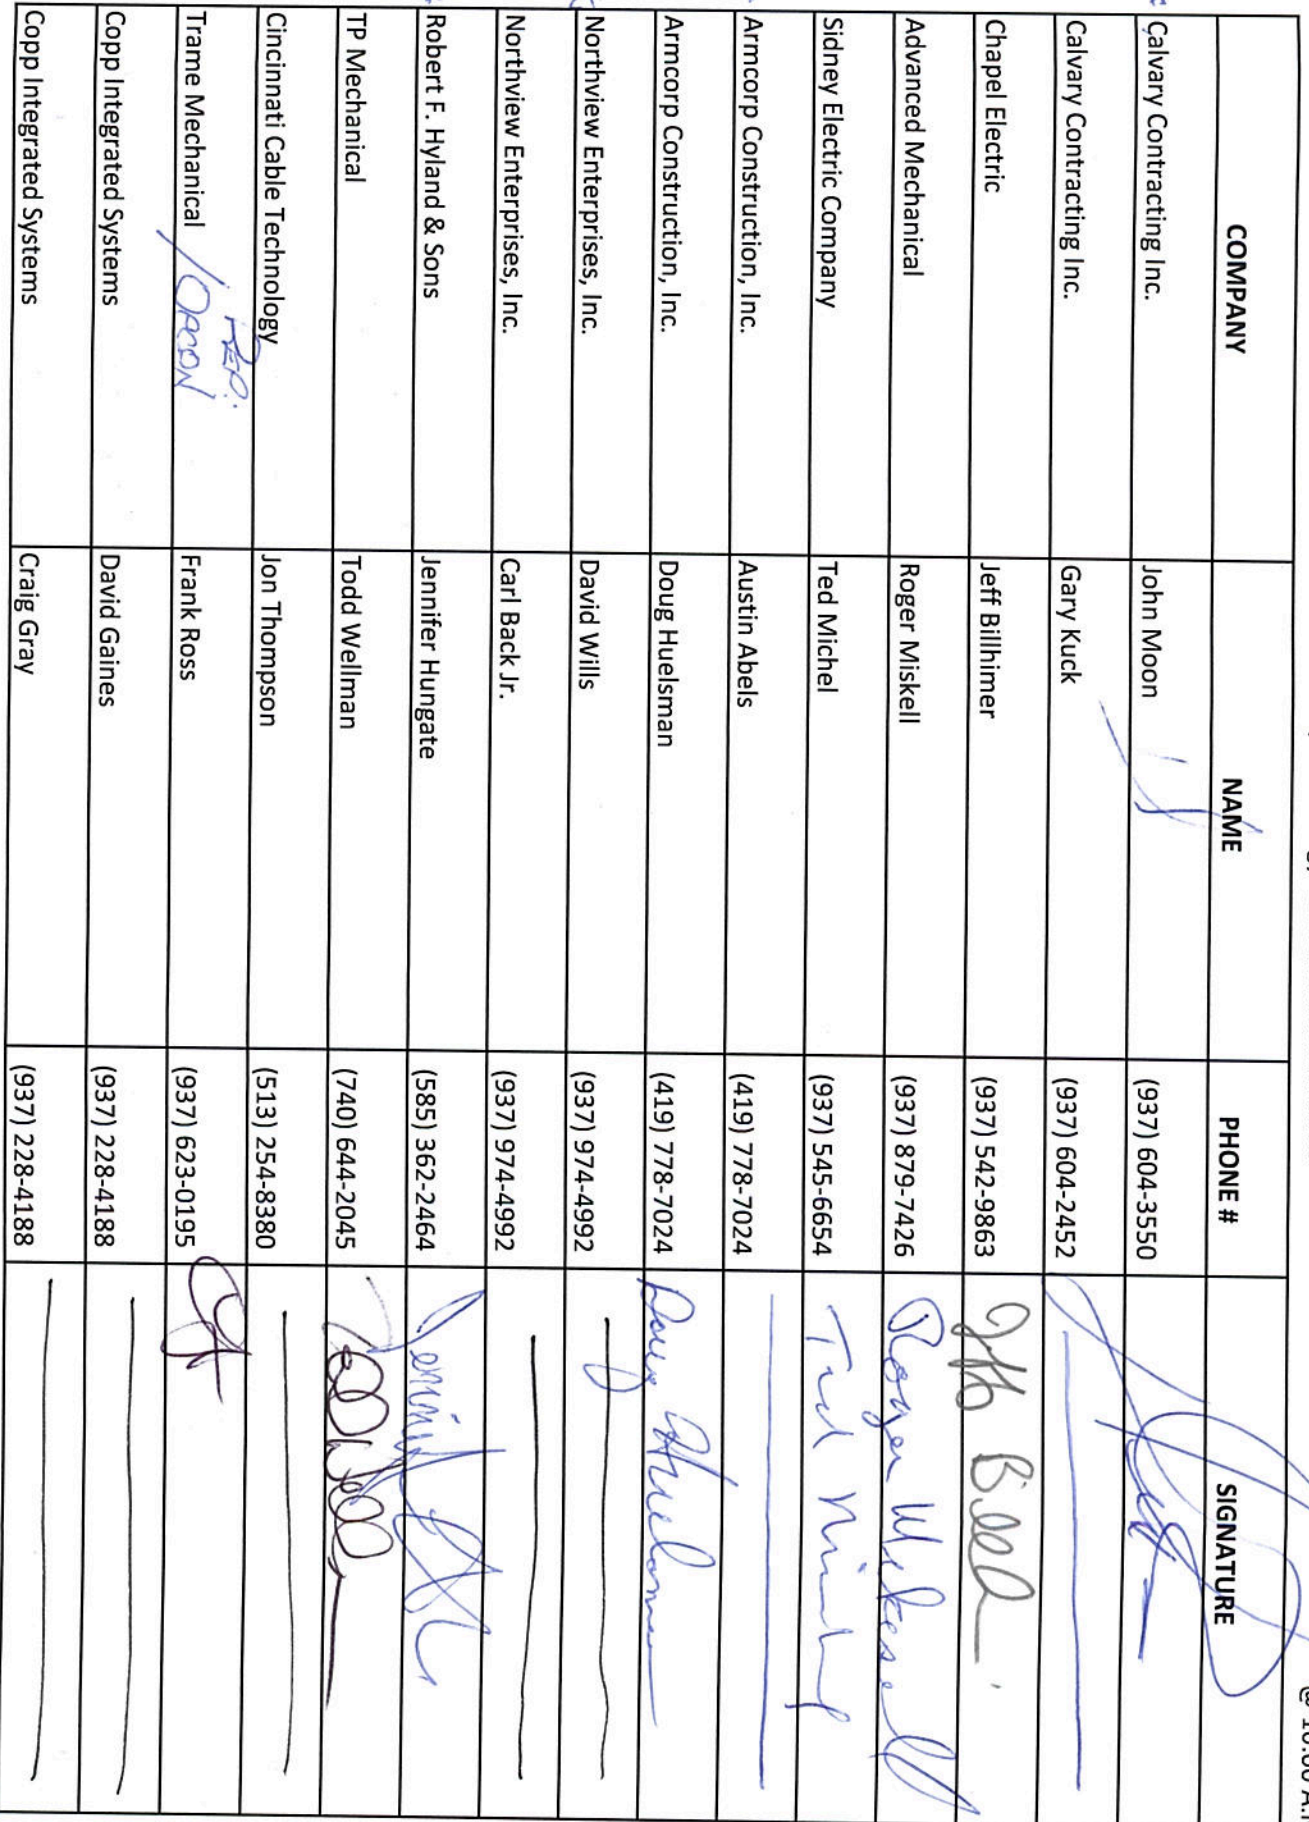 @ 10:00 A.
COMPANY NAME PHONE # SIGNATURE
Calvary Contracting Inc. John Moon (937) 604-3550
Calvary Contracting Inc. Gary Kuck (937) 604-2452
Chapel Electric Jeff Billhimer (937) 542-9863 Jeff Bill
Advanced Mechanical Roger Miskell (937) 879-7426 Roger Mikesell
Sidney Electric Company Ted Michel (937) 545-6654 Ted Michel
Armcorp Construction, Inc. Austin Abels (419) 778-7024
Armcorp Construction, Inc. Doug Huelsman (419) 778-7024 Doug Huelsman
Northview Enterprises, Inc. David Wills (937) 974-4992
Northview Enterprises, Inc. Carl Back Jr. (937) 974-4992
Robert F. Hyland & Sons Jennifer Hungate (585) 362-2464
TP Mechanical Todd Wellman (740) 644-2045
Cincinnati Cable Technology Jon Thompson (513) 254-8380
REP.
Trame Mechanical / OPCON Frank Ross (937) 623-0195
Copp Integrated Systems David Gaines (937) 228-4188
Copp Integrated Systems Craig Gray (937) 228-4188